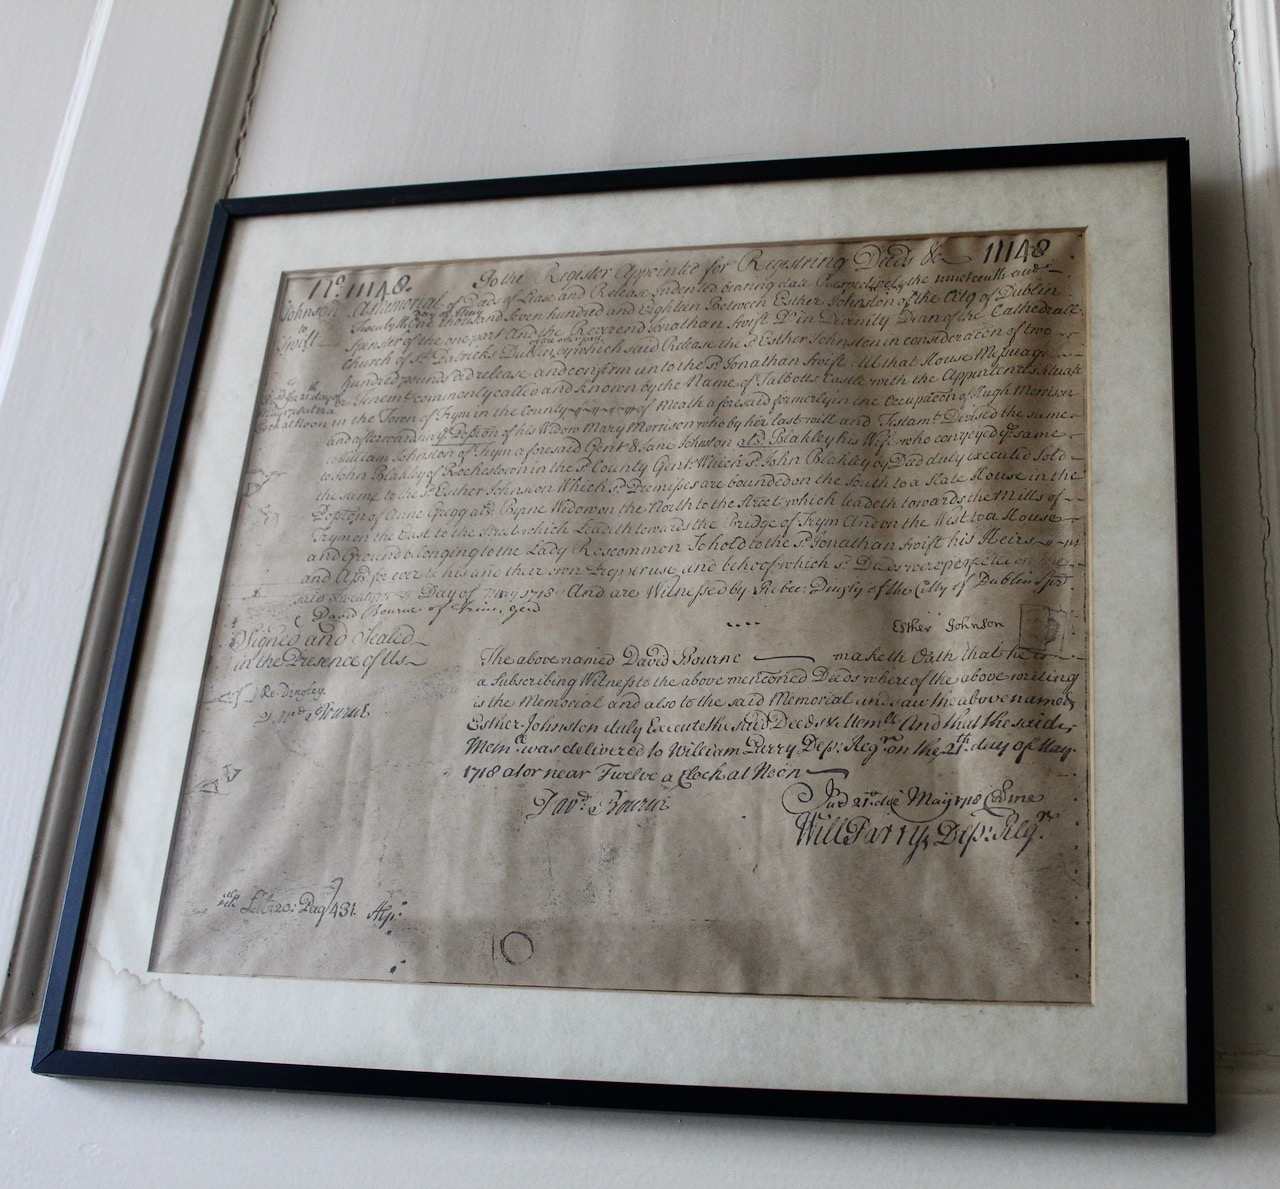 No. 11148. To the Register Appointed for Registring Deeds &c 11148
Johnson to Swift
A Memorial of Deeds of Lease and Release Indented bearing date Respectively the nineteenth and
Twentyth Day of May One thousand Seven hundred and Eighteen Between Esther Johnston of the City of Dublin
Spinster of the one part And the Reverend Jonathan Swift Dr in Divinity Dean of the Cathedrall
Church of St. Patricks Dublin of the other part by which said Release the sd. Esther Johnston in consideracon of two
hundred pounds did release and confirm unto the sd. Jonathan Swift All that House Messuage
or Tenemt commonly called and known by the Name of Talbotts Castle with the Appurtences Situate
in the Town of Trym in the County of Meath aforesaid formerly in the Occupacon of Hugh Morrison
and afterwards in ye. Possion of his Widow Mary Morrison who by her last will and Testamt Devised the same
to William Johnston of Trym aforesaid Gent & Jane Johnston als. Blakley his Wife who conveyed ye same
to John Blakley of Rochestown in the sd. County Gent Which sd. John Blakley by Deed duly executed Sold
the same to the sd. Esther Johnston Which sd. Premisses are bounded on the South to a Slate House in the
Possion of Anne Gregg als. Byrne Widow on the North to the Street which leadeth towards the Mills of
Trym on the East to the Street which Leadeth towards the Bridge of Trym And on the West to a House
and Ground belonging to the Lady Roscommon To hold to the sd. Jonathan Swift his Heirs
and Ass. for ever to his and their own Proper use and behoof which sd. Deeds were perfected on the
said twentyeth Day of May 1718 And are Witnessed by Rebec: Dingly of the Citty of Dublin
David Bourne of Trim, Gent
Esther Johnson
Signed and Sealed
in the Presence of Us
Re: Dingley.
David Bourne
The above named David Bourne maketh Oath that he is
a Subscribing Witness to the above mentioned Deeds whereof the above writing
is the Memorial and also to the said Memorial and saw the above named
Esther Johnston duly Execute the said Deeds & Memll And that the said
Memll was delivered to William Parry Dep: Regr on the 21th day of May
1718 at or near Twelve a Clock at Noon
Davd. Bourne
Jur 21o. die May 1718 Cor me
Will Parry Dep: Regr.
Lib: 20: Pag 431.